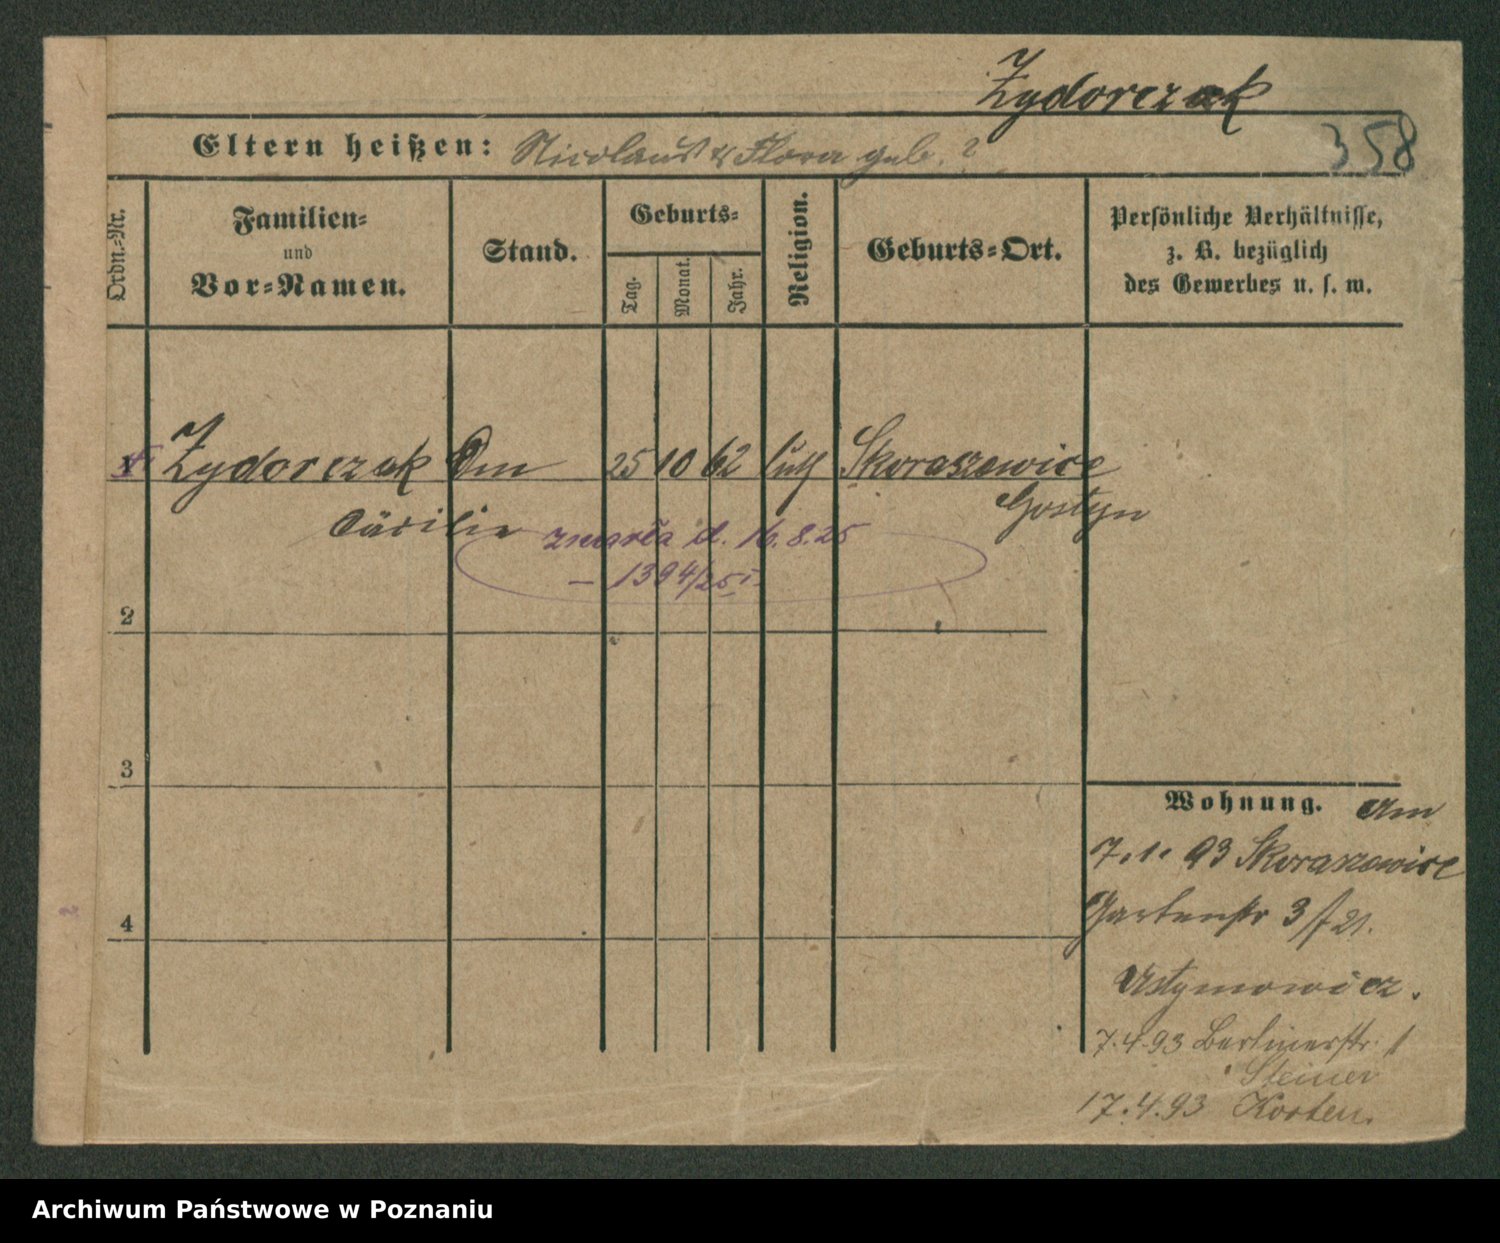 Zydorczak
358
Eltern heißen: Nicolaus & Flora geb. ?
Ordn.-Nr.
Familien-
und
Vor-Namen.
Stand.
Geburts-
Tag.
Monat.
Jahr.
Religion.
Geburts-Ort.
Persönliche Verhältnisse,
z. B. bezüglich
des Gewerbes u. s. w.
Zydorczak 25 10 62 Skoraszewice
Cäcilie Gostyn
zmarła d. 16.8.25
— 1394/25 I.
2
3
4
Wohnung. Am
7.1. 93 Skoraszewice
Gartenstr 3 / 21.
Ustymowicz.
7.4.93 Berlinerstr. 1
Steiner
17.4.93 Kosten.